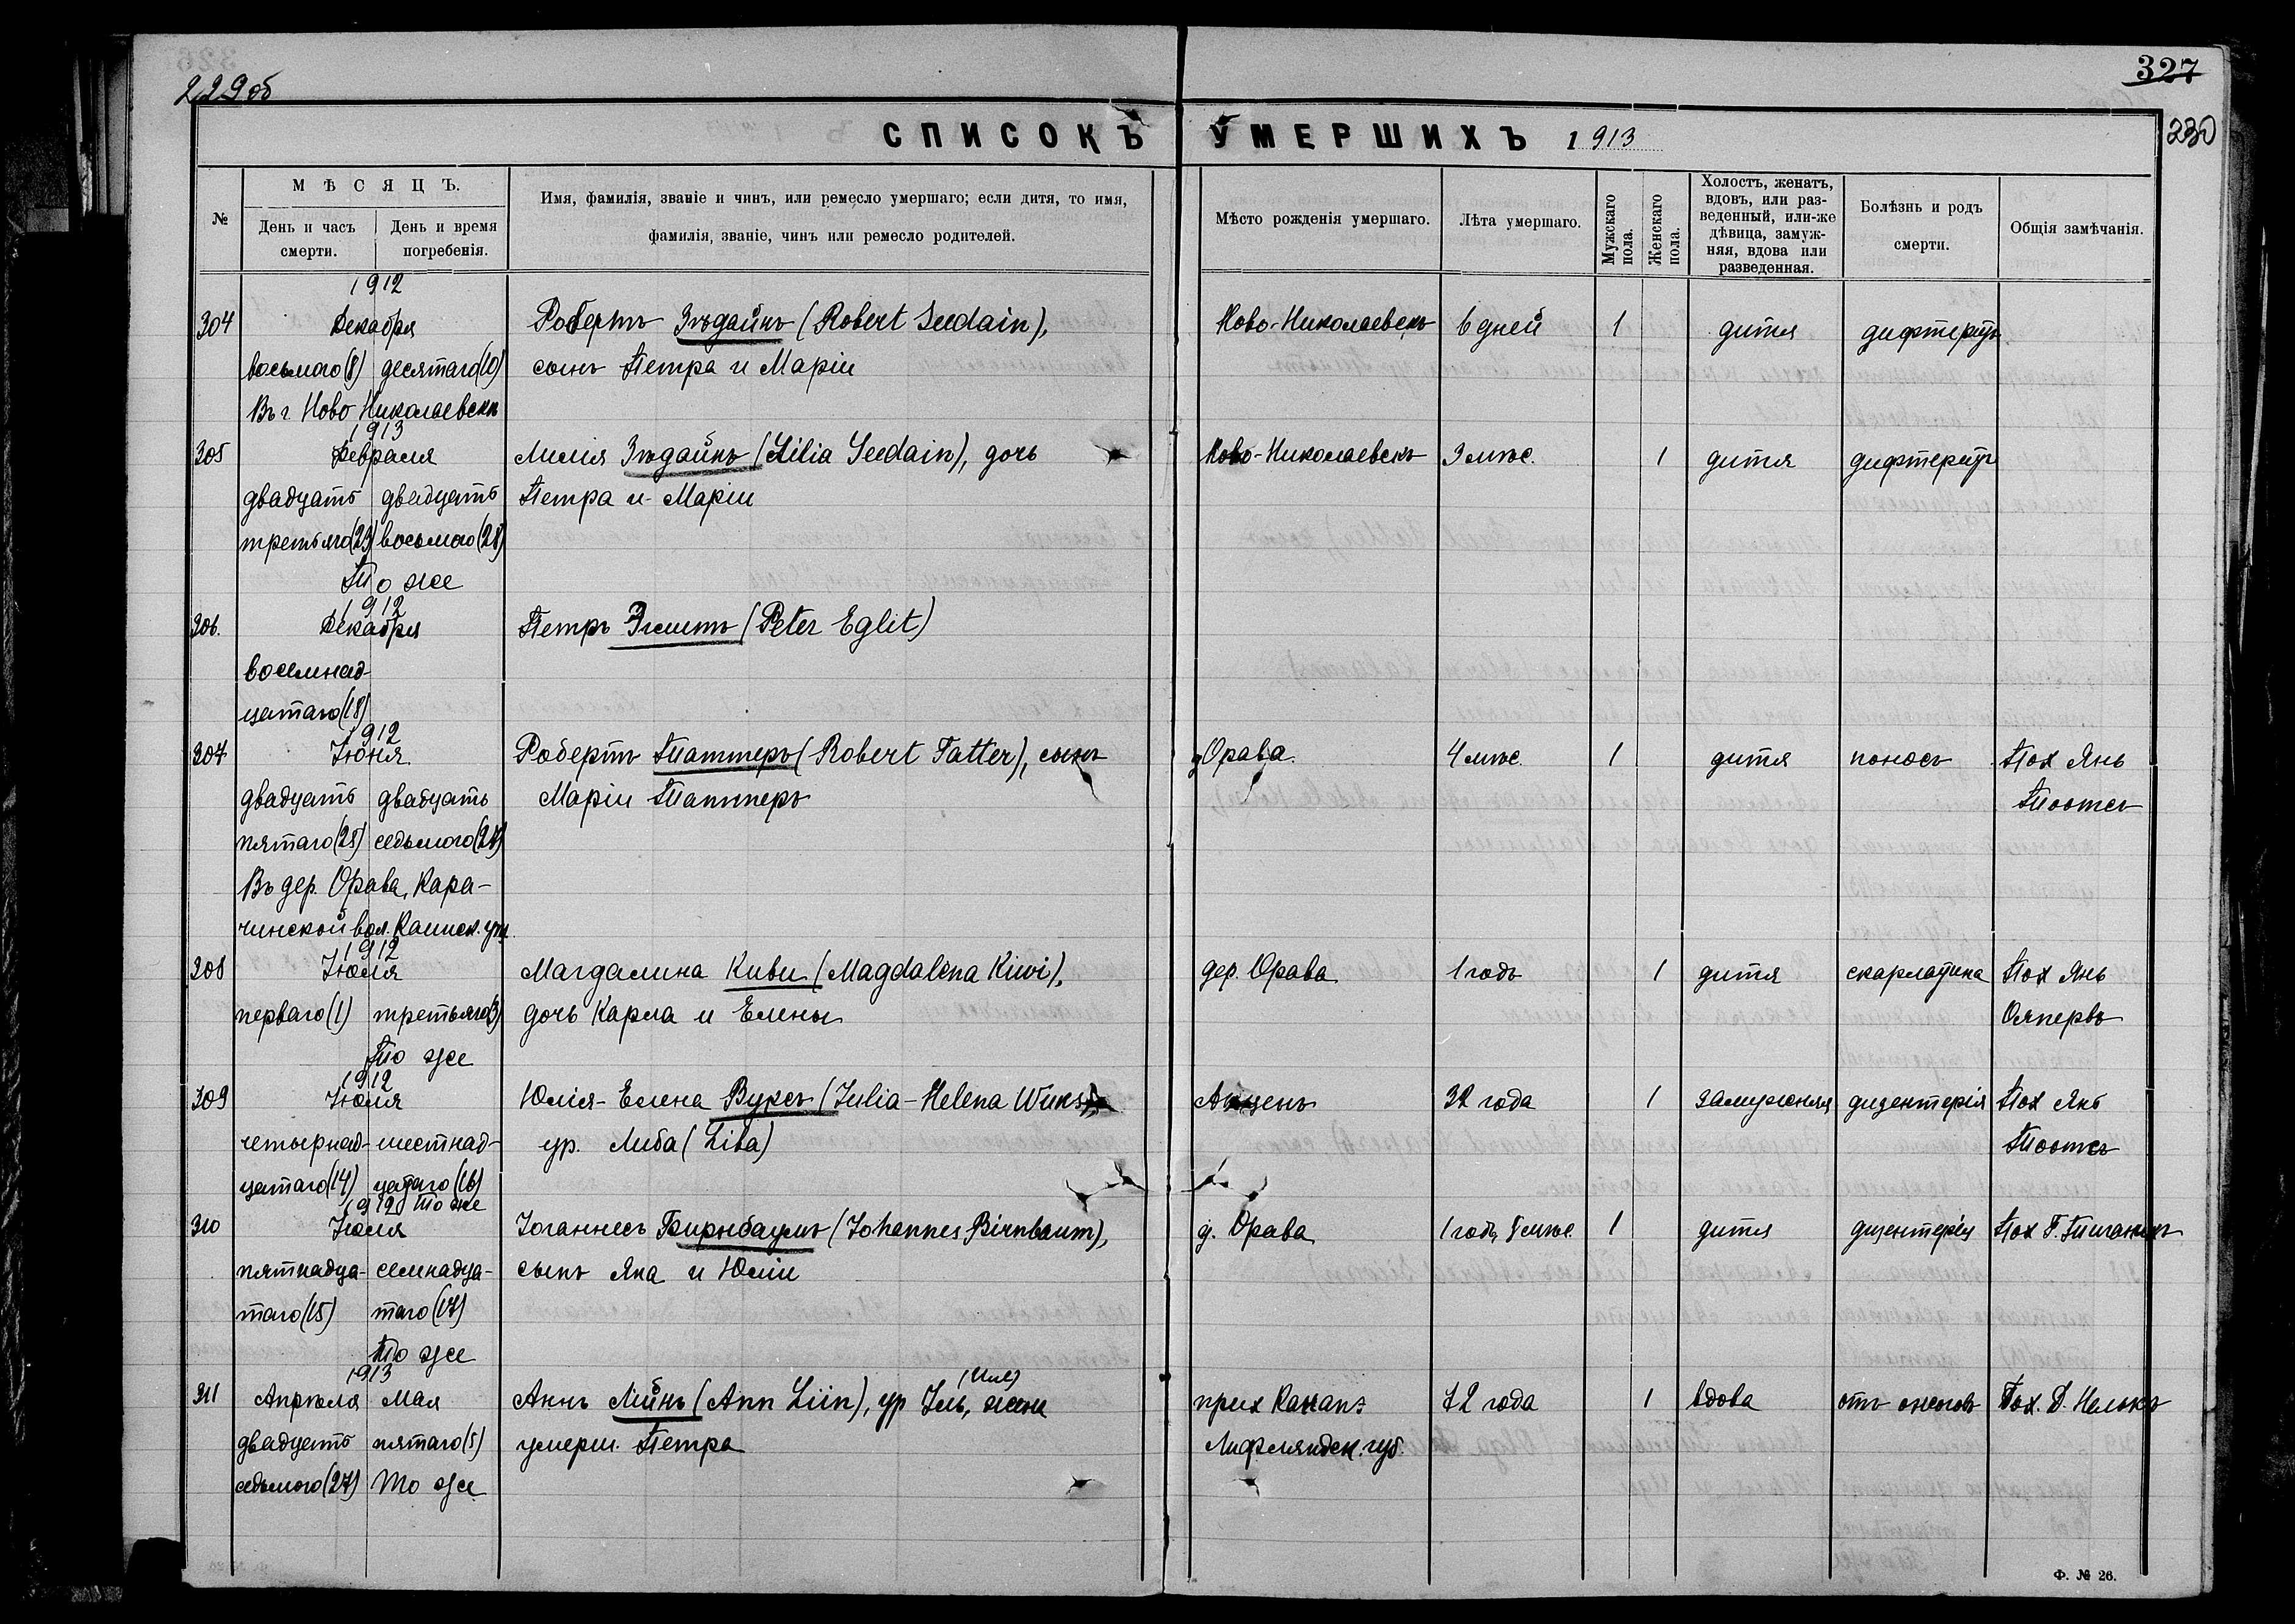 229об
327
230
СПИСОКЪ УМЕРШИХЪ 1913
№
МѢСЯЦЪ.
День и часъ смерти.
День и время погребенія.
Имя, фамилія, званіе и чинъ, или ремесло умершаго; если дитя, то имя,
фамилія, званіе, чинъ или ремесло родителей.
Мѣсто рожденія умершаго.
Лѣта умершаго.
Мужскаго пола.
Женскаго пола.
Холостъ, женатъ,
вдовъ, или раз-
веденный, или-же
дѣвица, замуж-
няя, вдова или
разведенная.
Болѣзнь и родъ
смерти.
Общія замѣчанія.
1912
304 Декабря Робертъ Зѣдайнъ (Robert Seedain), Ново-Николаевскъ 6 дней 1 дитя дифтеритъ
восьмого (8) десятаго (10) сынъ Петра и Маріи
Въ г. Ново Николаевскѣ
1913
305 Февраля Лилія Зѣдайнъ (Lilia Seedain), дочь Ново-Николаевскъ 3 мѣс. 1 дитя дифтеритъ
двадцать двадцать Петра и Маріи
третьяго (23) восьмого (28)
То же
1912
306. Декабря Петръ Эглитъ (Peter Eglit)
восемнад-
цатаго (18)
1912
307 Іюня Робертъ Таттеръ (Robert Tatter), сынъ д Орава. 4 мѣс. 1 дитя поносъ Пох Янъ
двадцать двадцать Маріи Таттеръ Тоотсъ
пятаго (25) седьмого (27)
Въ дер. Орава, Кара-
чинской вол. Каинск. уѣз.
1912
308 Іюля Магдалина Киви (Magdalena Kiwi), дер. Орава 1 годъ 1 дитя скарлатина Пох Янъ
перваго (1) третьяго (3) дочь Карла и Елены
То же
1912
309 Іюля Юлія-Елена Вуксъ (Julia-Helena Wuks), 32 года 1 замужняя дизентерія Пох Янъ
четырнад- шестнад- ур. Либа (Liba) Тоотсъ
цатаго (14) цатаго (16)
1912 То же
310 Іюля Іоганнесъ Бирнбаумъ (Johannes Birnbaum), д. Орава 1 годъ, мѣс. 1 дитя дизентерія Пох
пятнадца- семнадца- сынъ Яна и Юліи
таго (15) таго (17)
То же
1913
311 Апрѣля Мая Аннъ Лійнъ (Ann Liin), ур Іль, жена прих Каннапэ 72 года 1 вдова отъ ожоговъ Пох. Д.
двадцать пятаго (5) умерш. Петра Лифляндск. губ.
седьмого (27) То же
Ф. № 26.